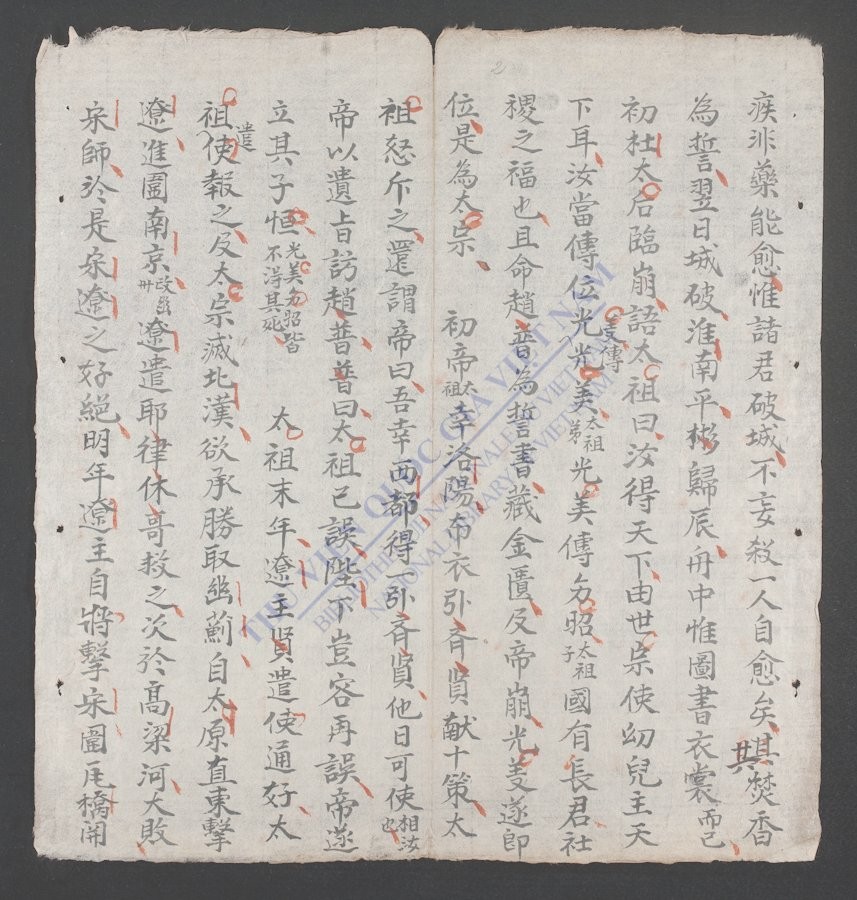 2
疾非藥能愈惟諸君破城不妄殺一人自愈矣其焚香
為誓翌日城破淮南平彬歸辰舟中惟圖書衣裳而已
初杜太后臨崩語太祖曰汝得天下由世宗使幼兒主天
下耳汝當傳位光义傳光美太祖弟光美傳匀昭太祖子國有長君社
稷之福也且命趙普為誓書藏金匱及帝崩光义遂即
位是為太宗 初帝太祖幸洛陽布衣引斉賢献十策太
祖怒斥之還謂帝曰吾幸西都得一引斉賢他日可使相汝也
帝以遺旨訪趙普普曰太祖已誤陛下豈容再誤帝遂
立其子恒光美匀昭皆不得其死 太祖末年遼主賢遣使通好太
祖遣使報之及太宗滅北漢欲承勝取幽薊自太原直東擊
遼進圍南京改幽州遼遣耶律休哥救之次於高梁河大敗
宋師於是宋遼之好絕明年遼主自將擊宋圍瓦橋開
THƯ VIỆN QUỐC GIA VIỆT NAM
BIBLIOTHÈQUE NATIONALE DU VIETNAM
NATIONAL LIBRARY OF VIETNAM